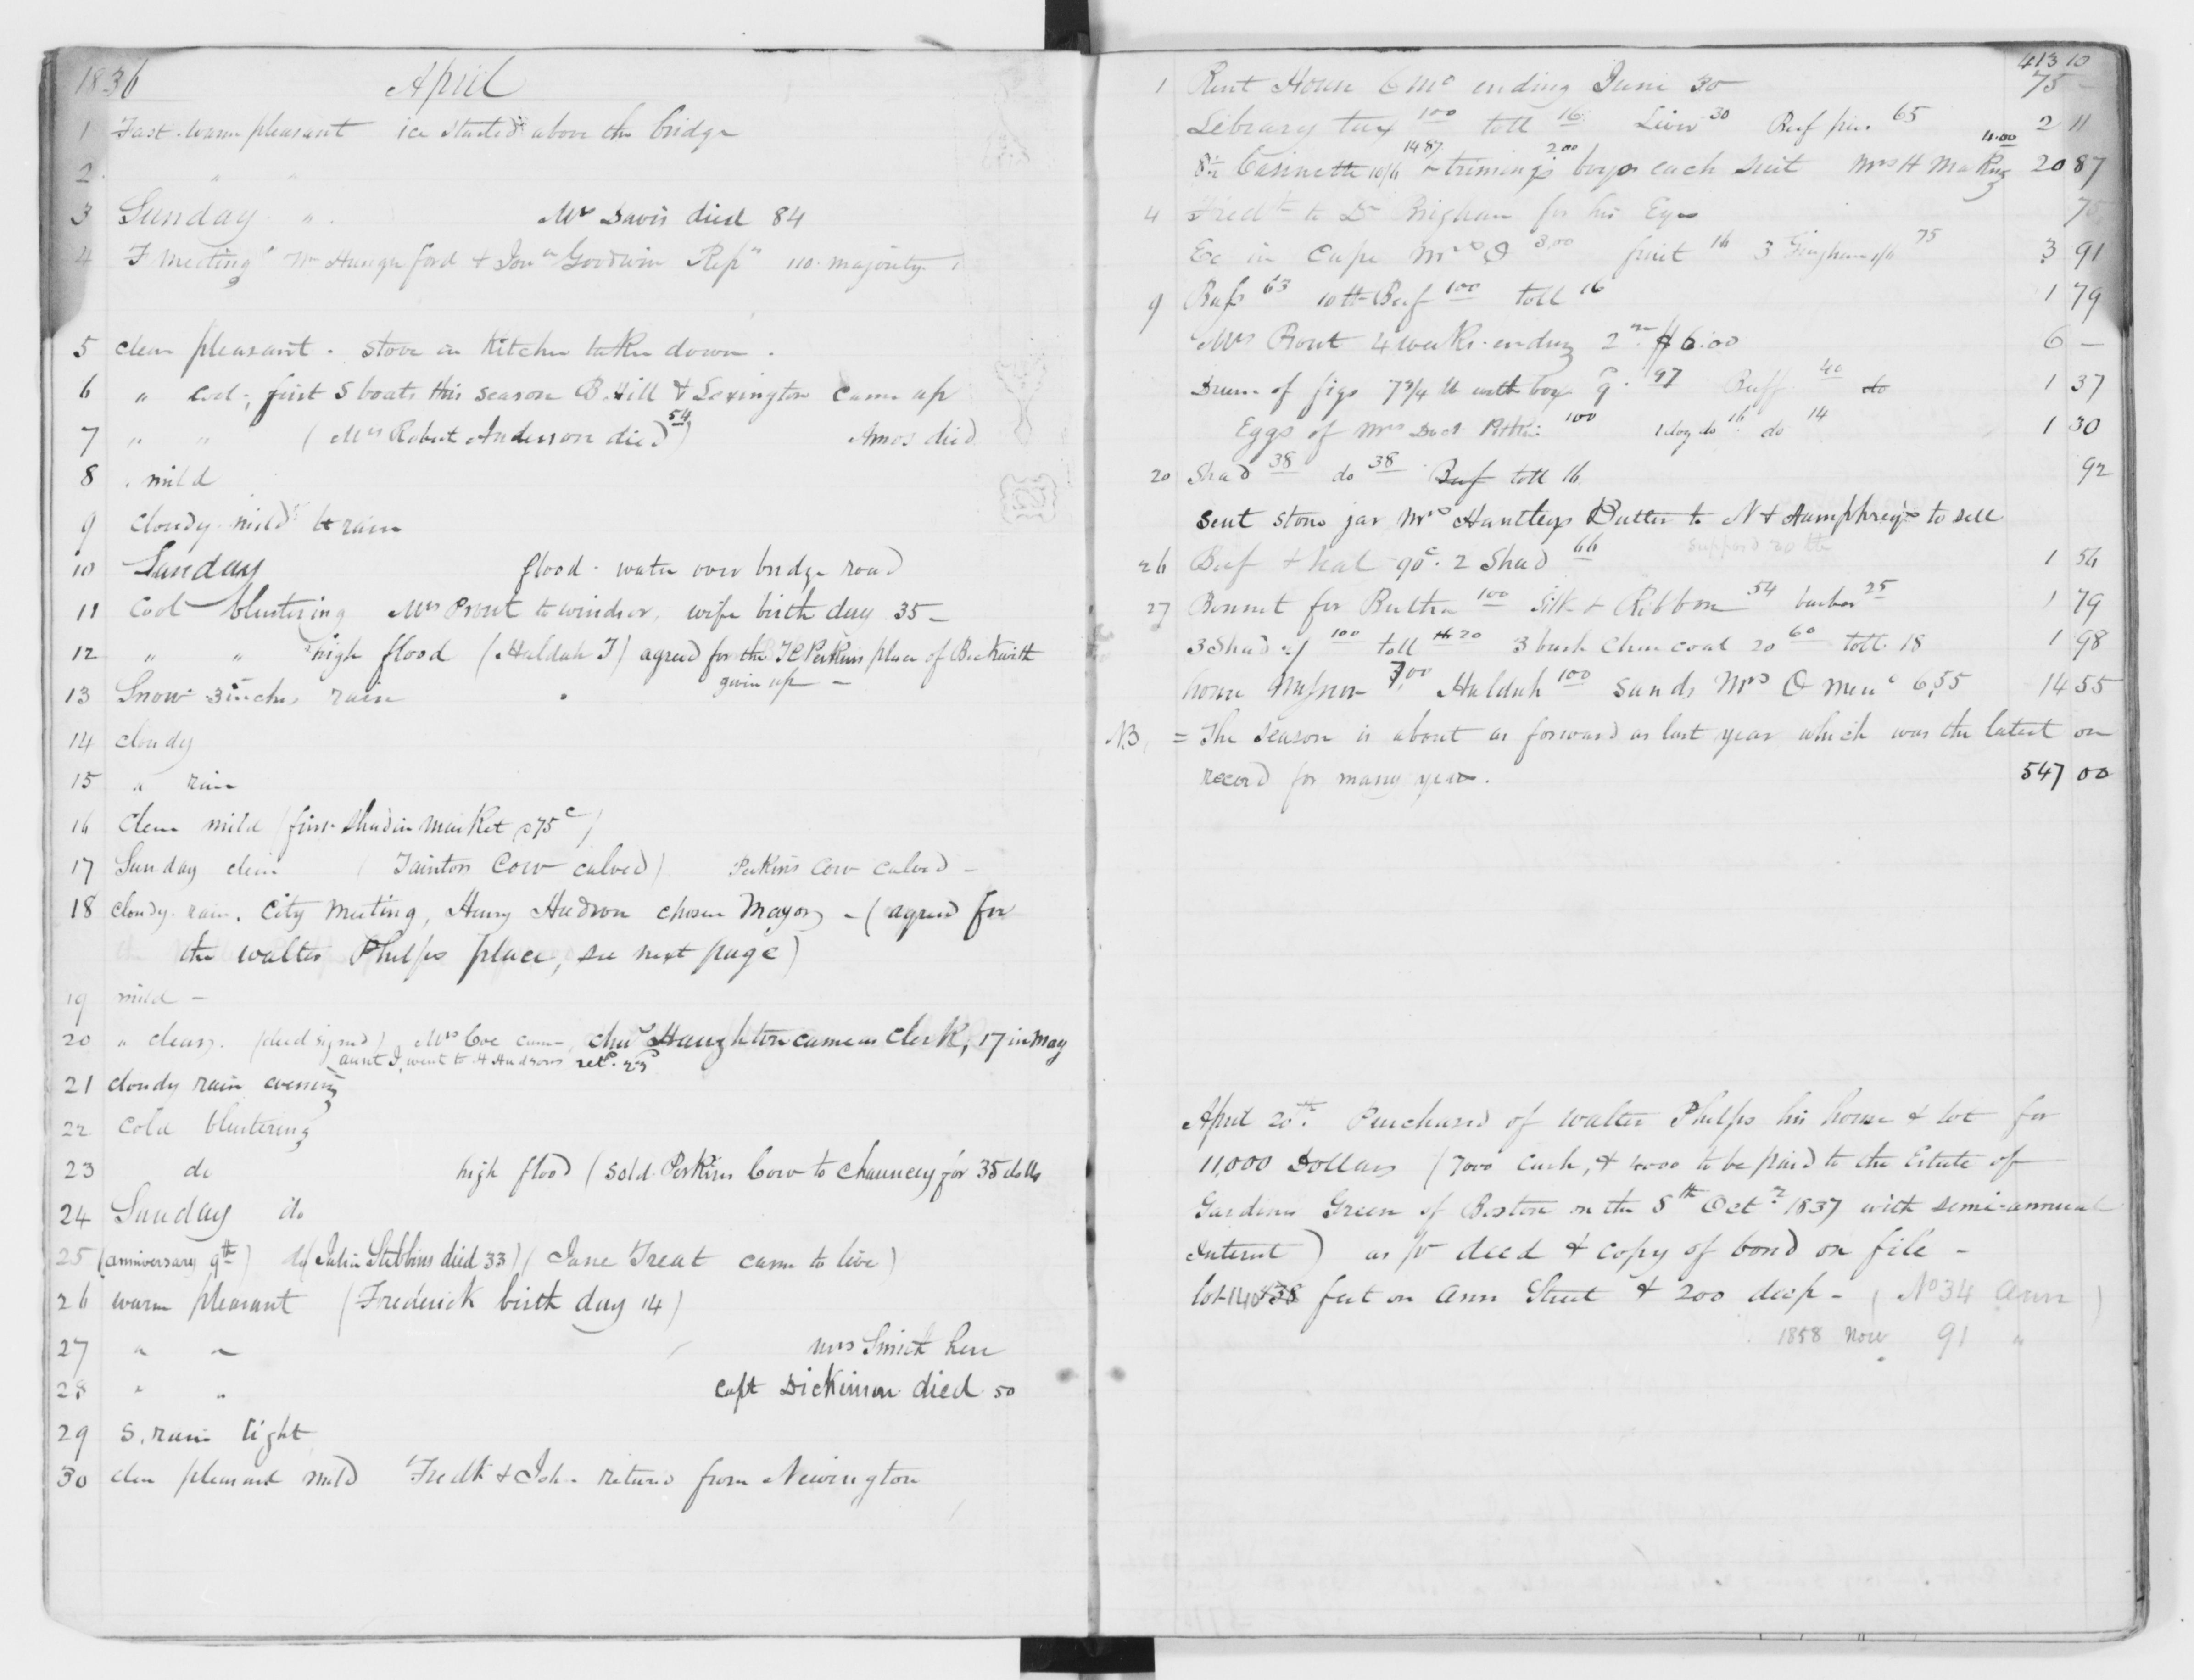 1836 April
1 Fast. warm pleasant ice started above the bridge
2 " "
3 Sunday " Mr Davis died 84
4 F meeting Wm Hungerford & Jon Goodwin Rep 110 majority
5 clear pleasant. stove in Kitchen taken down.
6 " Cool, first S boats this season B. Hill & Lexington came up
7 " " (Mrs Robert Anderson died 54) Amos died
8 . mild
9 cloudy mild lt rain
10 Sunday flood. water over bridge road
11 Cool blustering Mrs Prout to windsor, wife birth day 35 –
12 " " high flood (Huldah T) agreed for the Perkins place of Beckwith
given up –
13 Snow 3 inches rain
14 cloudy
15 " rain
16 Clear mild (first Shad in market 75c)
17 Sunday clear (Taintor Cow calved) Perkins Cow Calved –
18 cloudy. rain. City meeting, Henry Hudson chosen Mayor – (agreed for
the walter Phelps place, see next page)
19 mild –
20 " clear. (deed signed) Mrs Coe came, Chs Haughton came as Clerk, 17 in May
aunt J. went to H Hudsons retd. 23d
21 cloudy rain evening
22 Cold blustering
23 do high flood (sold Perkins Cow to Chauncey for 35 dolls
24 Sunday do
25 (anniversary 9th) do (Julia Stebbins died 33) (Jane Treat came to live)
26 warm pleasant (Frederick birth day 14)
27 " " Mrs Smith here
28 " " capt Dickinson died 50
29 S. rain light
30 clear pleasant mild Fredk & Joh. returnd from Newington
413 10
1 Rent House 6 Mo ending June 30 75 –
Library tax 100 toll 16 Liver 30 Beef 65 2 11
8½ Casinette 10/6 14 87 & trimings 2 00 boys each suit Mrs H Making 4.00 20 87
4 Fredk to Dr Brigham for his Eyes 75
Ex in Cape Mrs O 3.00 fruit 16 3 Gingham 75 3 91
9 Bass 63 10 lb Beef 100 toll 16 1 79
Mrs Prout 4 weeks ending 2nd $6.00 6 –
Drum of figs 7¾ lb with box 9. 97 Beef 40 do 1 37
Eggs of Mrs 100 1 doz do 16 do 14 1 30
20 Shad 38 do 38 Beef toll 16 92
sent stone jar Mrs Huntleys Butter to N & Humphreys to sell
suppos'd 20 lb
26 Beef & Veal 90c. 2 Shad 66 1 56
27 Bonnet for Bertha 100 Silk & Ribbon 54 barber 25 1 79
3 Shad 100 toll 20 3 bush Charcoal 20 60 toll. 18 1 98
7,00 Huldah 100 Sunds Mrs O 6,55 14 55
NB. = The season is about as forward as last year which was the latest on
record for many years. 547 00
April 20th. Purchased of walter Phelps his house & lot for
11,000 Dollars (7000 Cash, & 4000 to be paid to the Estate of
Gardiner Green of Boston on the 5th Octr 1837 with semi-annual
Interest) as pr deed & copy of bond on file –
lot 140 feet on Ann Street & 200 deep – (No 34 Ann)
1858 now 91 "